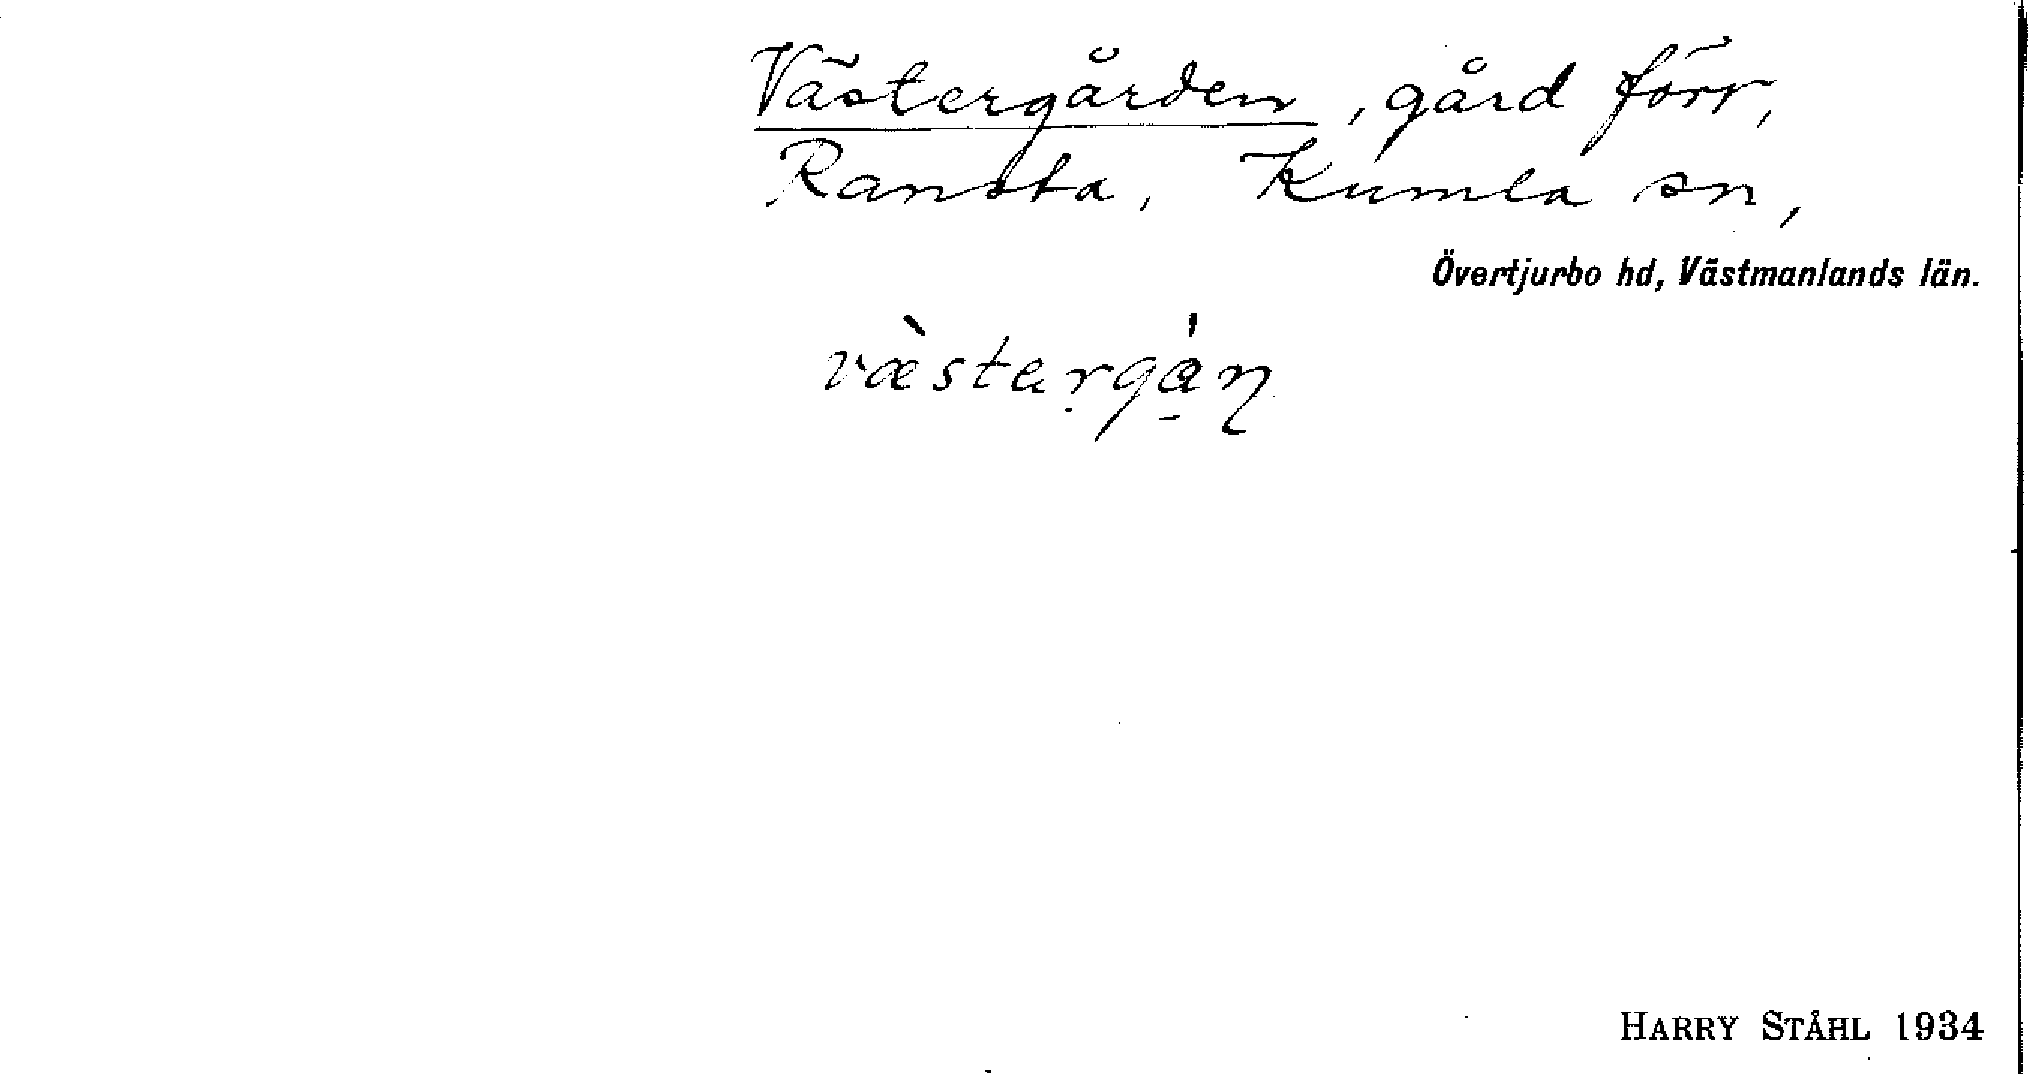 Västergården, gård förr,
Ransta, Kumla sn,
Övertjurbo hd, Västmanlands län.
væ̀stęrgá̱ɳ
HARRY STÅHL 1934